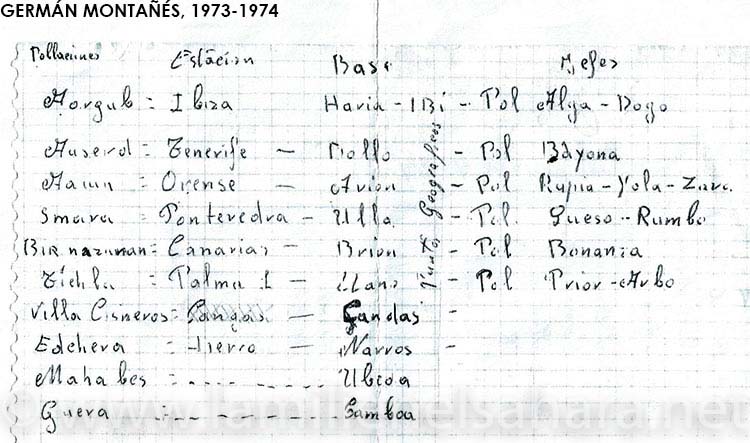 GERMÁN MONTAÑÉS, 1973-1974
Poblaciones Estación Base Jefes
Aorgub = Ibiza Haria - IBi - Pol Alga - Dogo
Auserd = Tenerife - Mollo - Pol Bayona
Aaiun = Orense - Avion - Pol Rupia - Yola - Zara.
Smara = Pontevedra - Ulla - Pol. Queso - Rumbo
Bir nazaran = Canarias - Brion - Pol Bonanza
Tichla = Palma - Llano - Pol Prior - Arbo
Puntos Geograficos
Villa Cisneros = Cangas - Candas -
Edchera = Hierro - Narros -
Mahabes = - - - - - - Ubeda
Guera = - - - - - - - Gamboa
www.lamilienelsahara.net